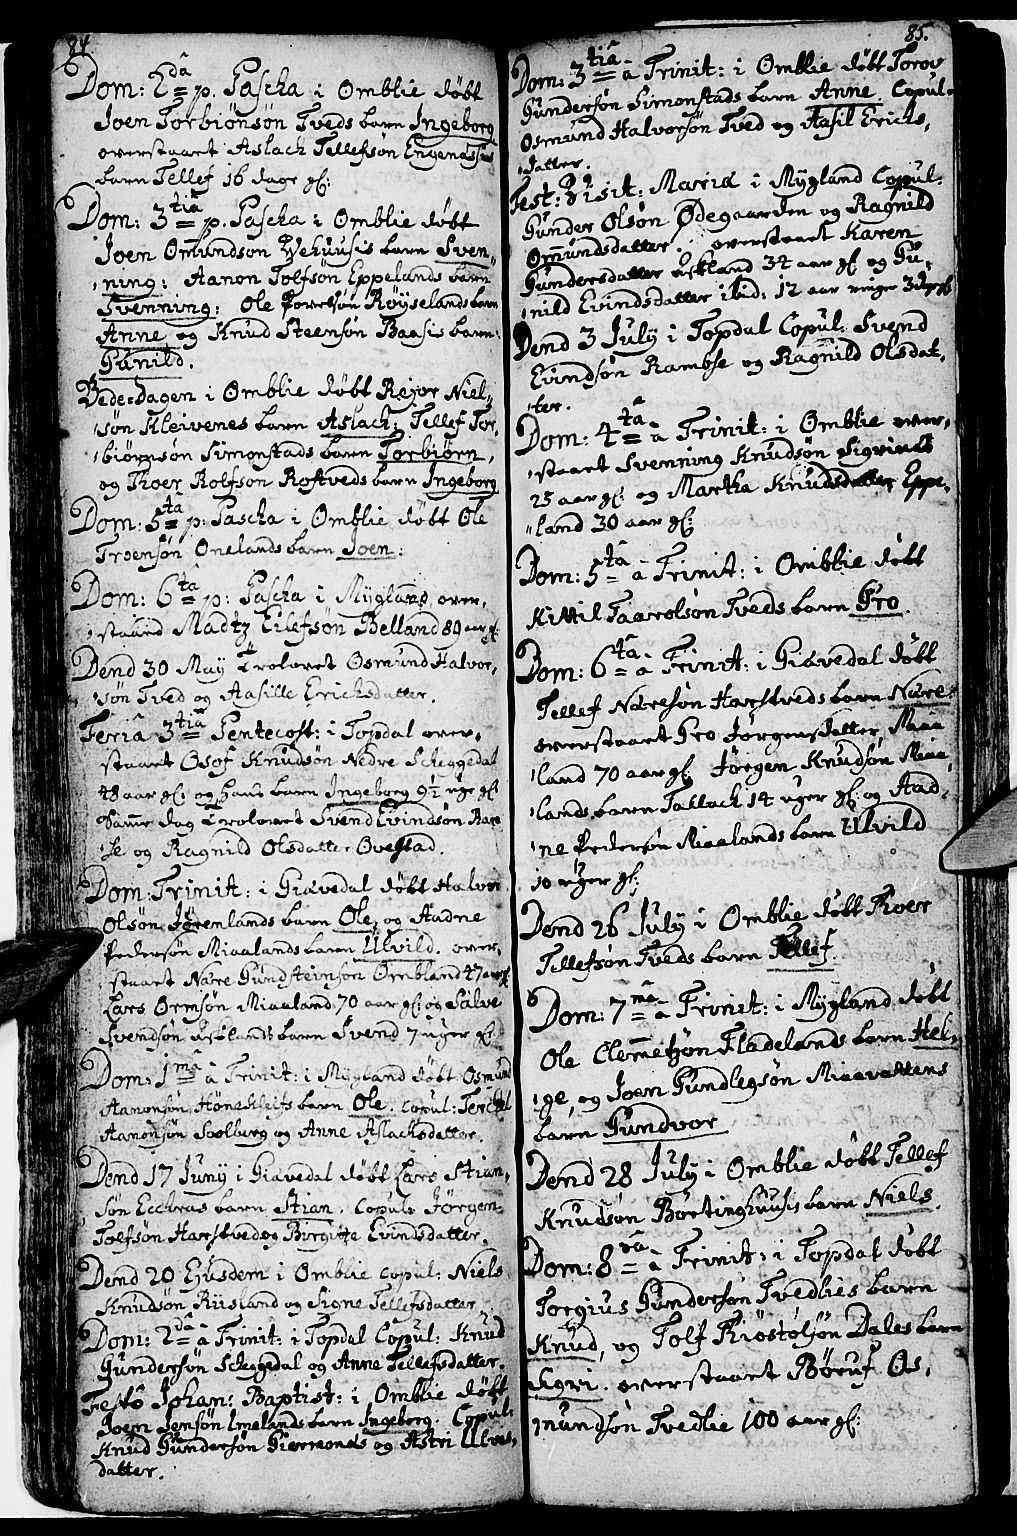 84
Dom: 2dâ p. Pascha i Omblie døbt
Joen Torbiønsøn Tveds barn Ingeborg
overstaaet Aslach Tellefsøn Engenæsses
barn Tellef 16 dage gl:
Dom: 3tiâ p. Pascha i Omblie døbt
Joen Omundsøn Vehuusis barn Sven-
-ning: Aanon Tolfsøn Eppelands barn
Svenning: Ole Povelsøn Røyselands barn
Anne og Knud Steensøn Baasis barn:
Gunild.
Bede-Dagen i Omblie døbt Rejor Niel-
-søn Kleivenes barn Aslach: Tellef Tor-
-biørnsøn Simonstads barn Torbiørn,
og Thoer Rolfsøn Rostveds barn Ingeborg
Dom: 5tâ p: Pascha i Omblie døbt Ole
Troensøn Onelands barn Joen:
Dom: 6tâ p: Pascha i Mygland over-
-staaed Madtz Eilefsøn Belland 89 aar gl:
Dend 30 May Trolovet Osmund Halvor-
søn Tved og Aasille Ericksdatter.
Feriâ 3tiâ Pentecost: i Topdal over-
staaet Osof Knudsøn Nedre Scheggedal
48 aar gl: og hans barn Ingeborg 9½ uge gl:
Samme dag Trolovet Svend Evindsøn Ram-
-se og Ragnild Olsdatter Ovestad.
Dom: Trinit: i Giævedal døbt Halvor
Olsøn Jørenlands barn Ole, og Aadne
Pedersøn Miaalands barn Ulvild. over-
staaet Nære Gundsteinsøn Ombland 47 aar gl:
Lars Ormsøn Miaaland 70 aar gl: og Salve
Svendsøn Asklands barn Svend 7 uger gl:
Dom: 1mâ â Trinit: i Mygland døbt Osmund
Aanonsøn Høneklefs barn Ole. Copul: Terckel
Aanonsøn Soolberg og Anne Aslachsdatter.
Dend 17 Juny i Giævedal døbt Lars Stian-
søn Eckraas barn Stian. Copul: Jørgen
Tolfsøn Harstved og Birgitte Evindsdatter.
Dend 20 Ejusdem i Omblie Copul: Niels
Knudsøn Riisland og Signe Tellefsdatter
Dom: 2dâ â Trinit: i Topdal Copul: Knud
Gundersøn Scheggedal og Anne Tellefsdatter.
Festô Johan: Baptist: i Omblie døbt
Joen Jensøn Lmelands barn Ingeborg. Copul:
Knud Gundersøn Giermones og Astri Ulves-
datter.
85.
Dom: 3tiâ â Trinit: i Omblie døbt Torov
Gundersøn Simonstads barn Anne. Copul:
Osmund Halvorsøn Tved og Aasil Ericks-
-datter.
Fest: Visit: Mariæ i Mygland Copul:
Gunder Olsøn Ødegaarden og Ragnild
Omundsdatter. overstaaet Karen
Gundersdatter Askland 34 aar gl: og Gu-
-nild Evindsdatter ibid: 12 aar ringe 3 dage gl:
Dend 3 July i Topdal Copul: Svend
Evindsøn Ramse og Ragnild Olsdat-
-ter.
Dom: 4tâ â Trinit: i Omblie over-
-staaet Svenning Knudsøn Sigrines
25 aar gl: og Martha Knudsdatter Eppe-
-land 30 aar gl:
Dom: 5tâ â Trinit: i Omblie døbt
Kittil Taarolsøn Tveds barn Gro.
Dom: 6tâ â Trinit: i Giævedal døbt
Tellef Næresøn Harstveds barn Nære:
overstaaet Gro Jørgensdatter Miaa-
land 70 aar gl: Jørgen Knudsøn Miaa-
-lands barn Tallach 14 uger gl: og Aad-
-ne Pedersøn Miaalands barn Ulvild
10 uger gl:
Dend 26 July i Omblie døbt Thoer
Tellefsøn Tveds barn Tellef.
Dom: 7mâ â Trinit: i Mygland døbt
Ole Clemmetsøn Fladelands barn Hel-
-ge, og Joen Gundlegsøn Miaavattens
barn Gundvor
Dend 28 July i Omblie døbt Tellef
Knudsøn Børtinghuusis barn Niels.
Dom: 8vâ â Trinit: i Topdal døbt
Torgius Gundersøn Tvedlies barn
Knud, og Tolf Kiøstølsøn Dales barn
Sigri. overstaaet Børuf Os-
mundsøn Tvedlie 100 aar gl: